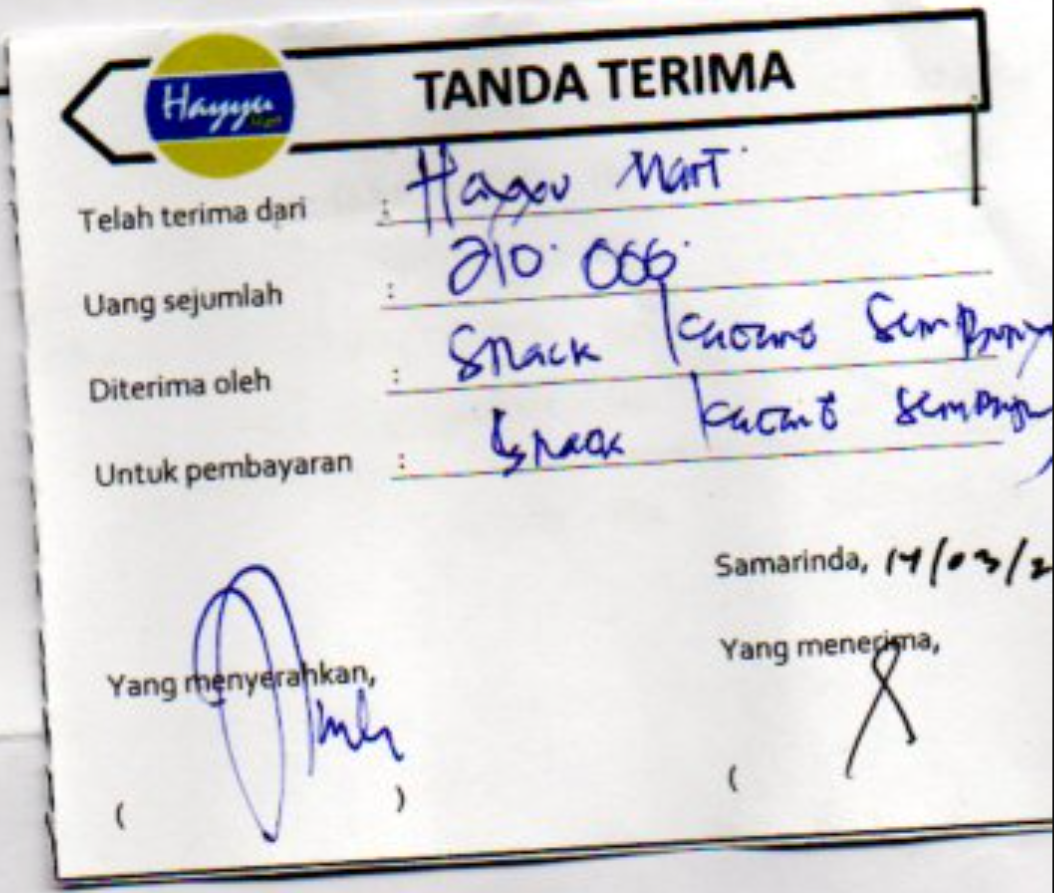 Hayyu Mart
TANDA TERIMA
Telah terima dari : Hayyu Mart
Uang sejumlah : 210.000
Diterima oleh : Snack
Untuk pembayaran : Snack
Samarinda, 14/03/2
Yang menyerahkan,
Yang menerima,
( ) (